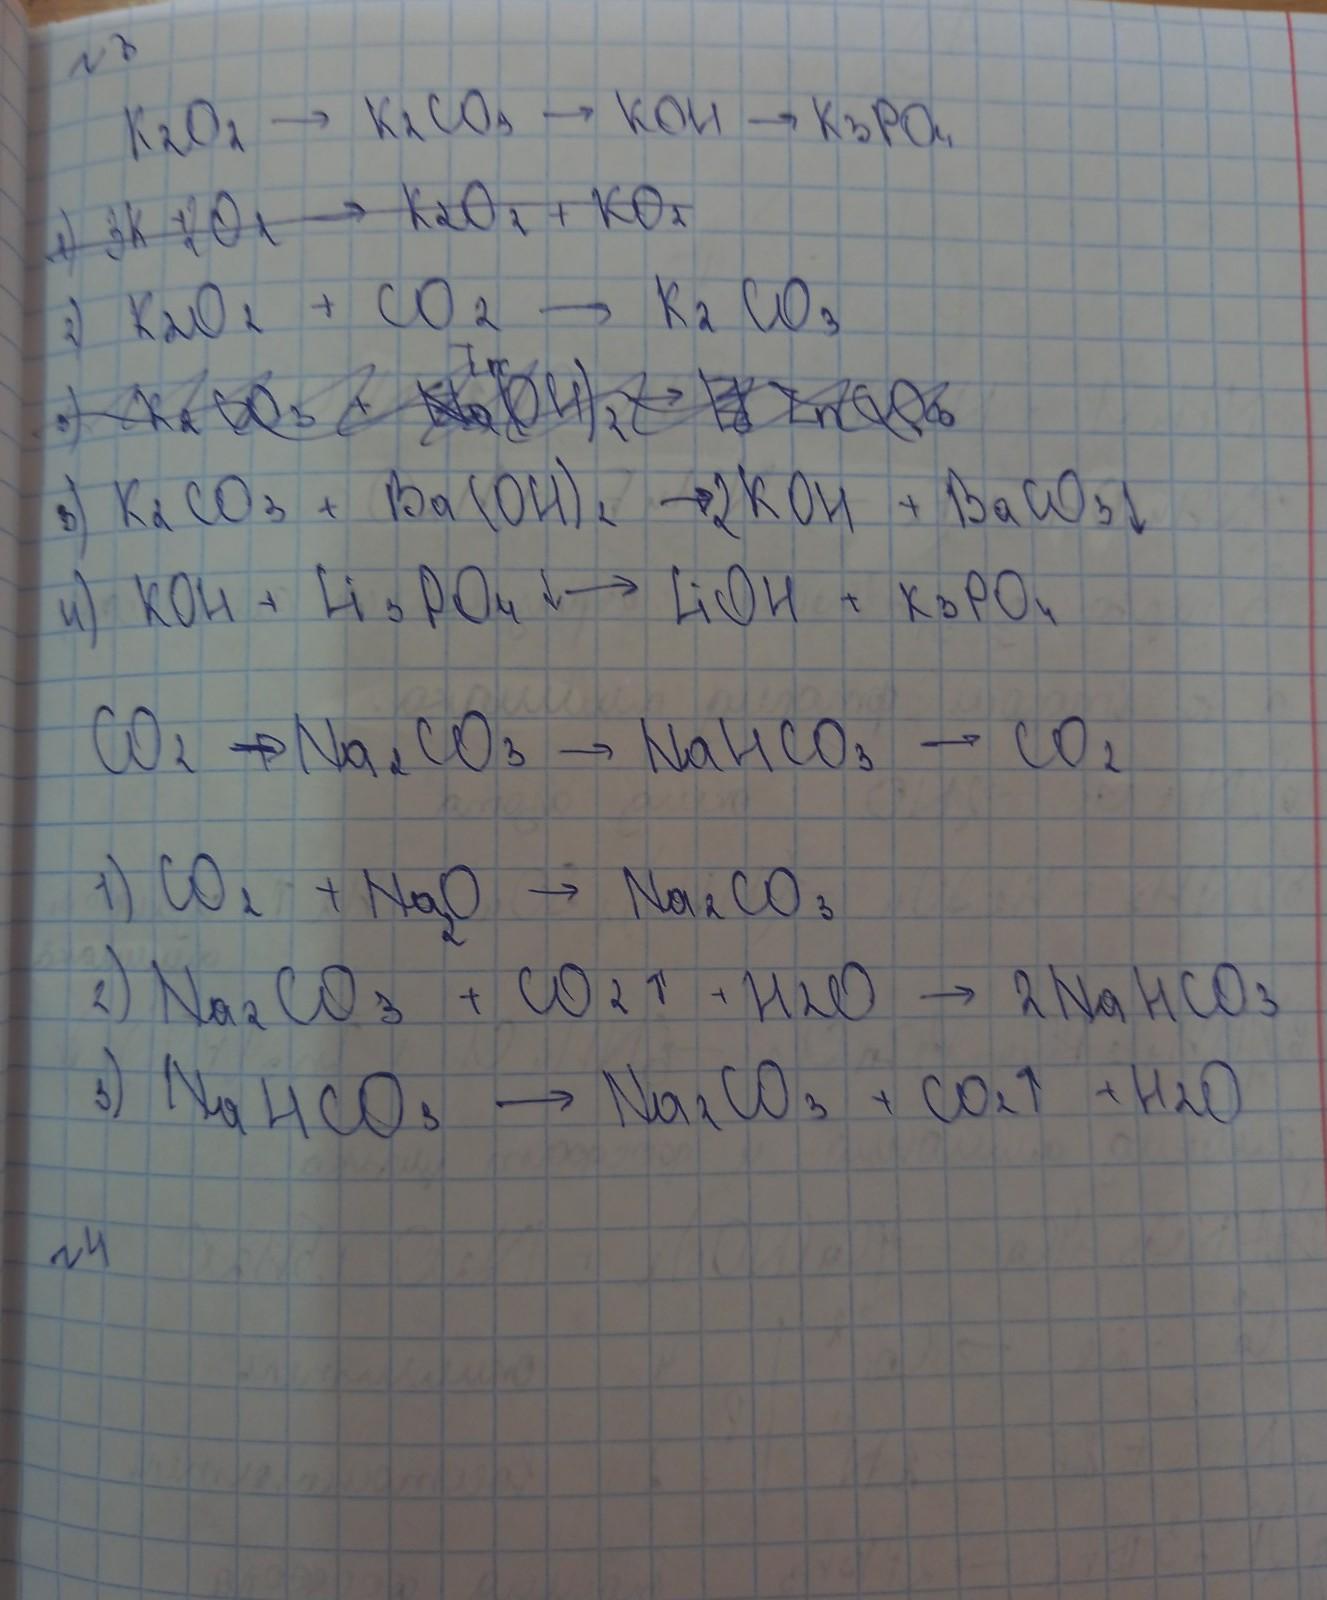 №3
K2O2 → K2CO3 → KOH → K3PO4
1) 3K + 2O2 → K2O2 + KO2
2) K2O2 + CO2 → K2CO3
3) K2CO3 + Ba(OH)2 → 2KOH + BaCO3↓
4) KOH + Li3PO4↓ → LiOH + K3PO4
CO2 → Na2CO3 → NaHCO3 → CO2
1) CO2 + Na2O → Na2CO3
2) Na2CO3 + CO2↑ + H2O → 2NaHCO3
3) NaHCO3 → Na2CO3 + CO2↑ + H2O
№4